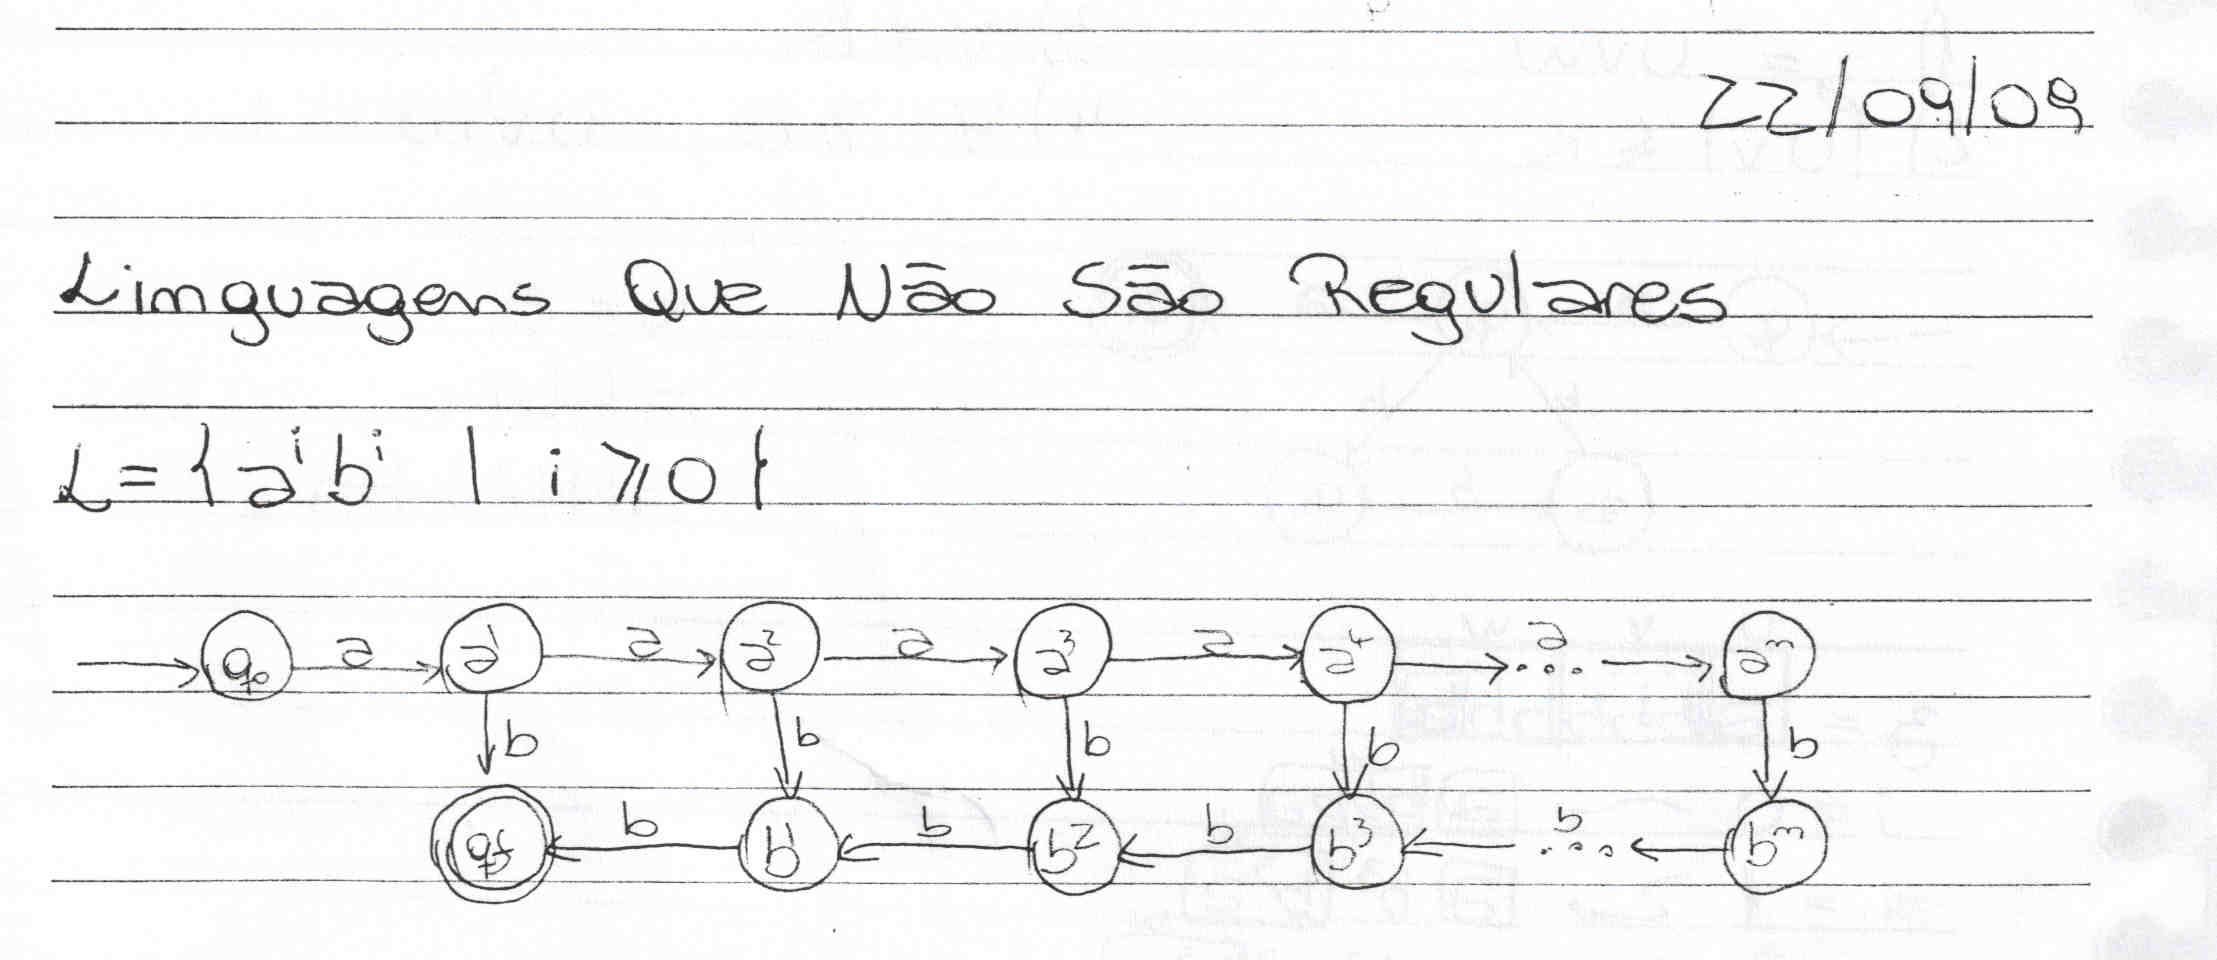 22/09/09
Linguagens Que Não São Regulares
L = { aⁱ bⁱ | i ⩾ 0 }
q₀ a a¹ a a² a a³ a a⁴ a ... aⁿ
b b b b b
qf b b¹ b b² b b³ b ... bⁿ